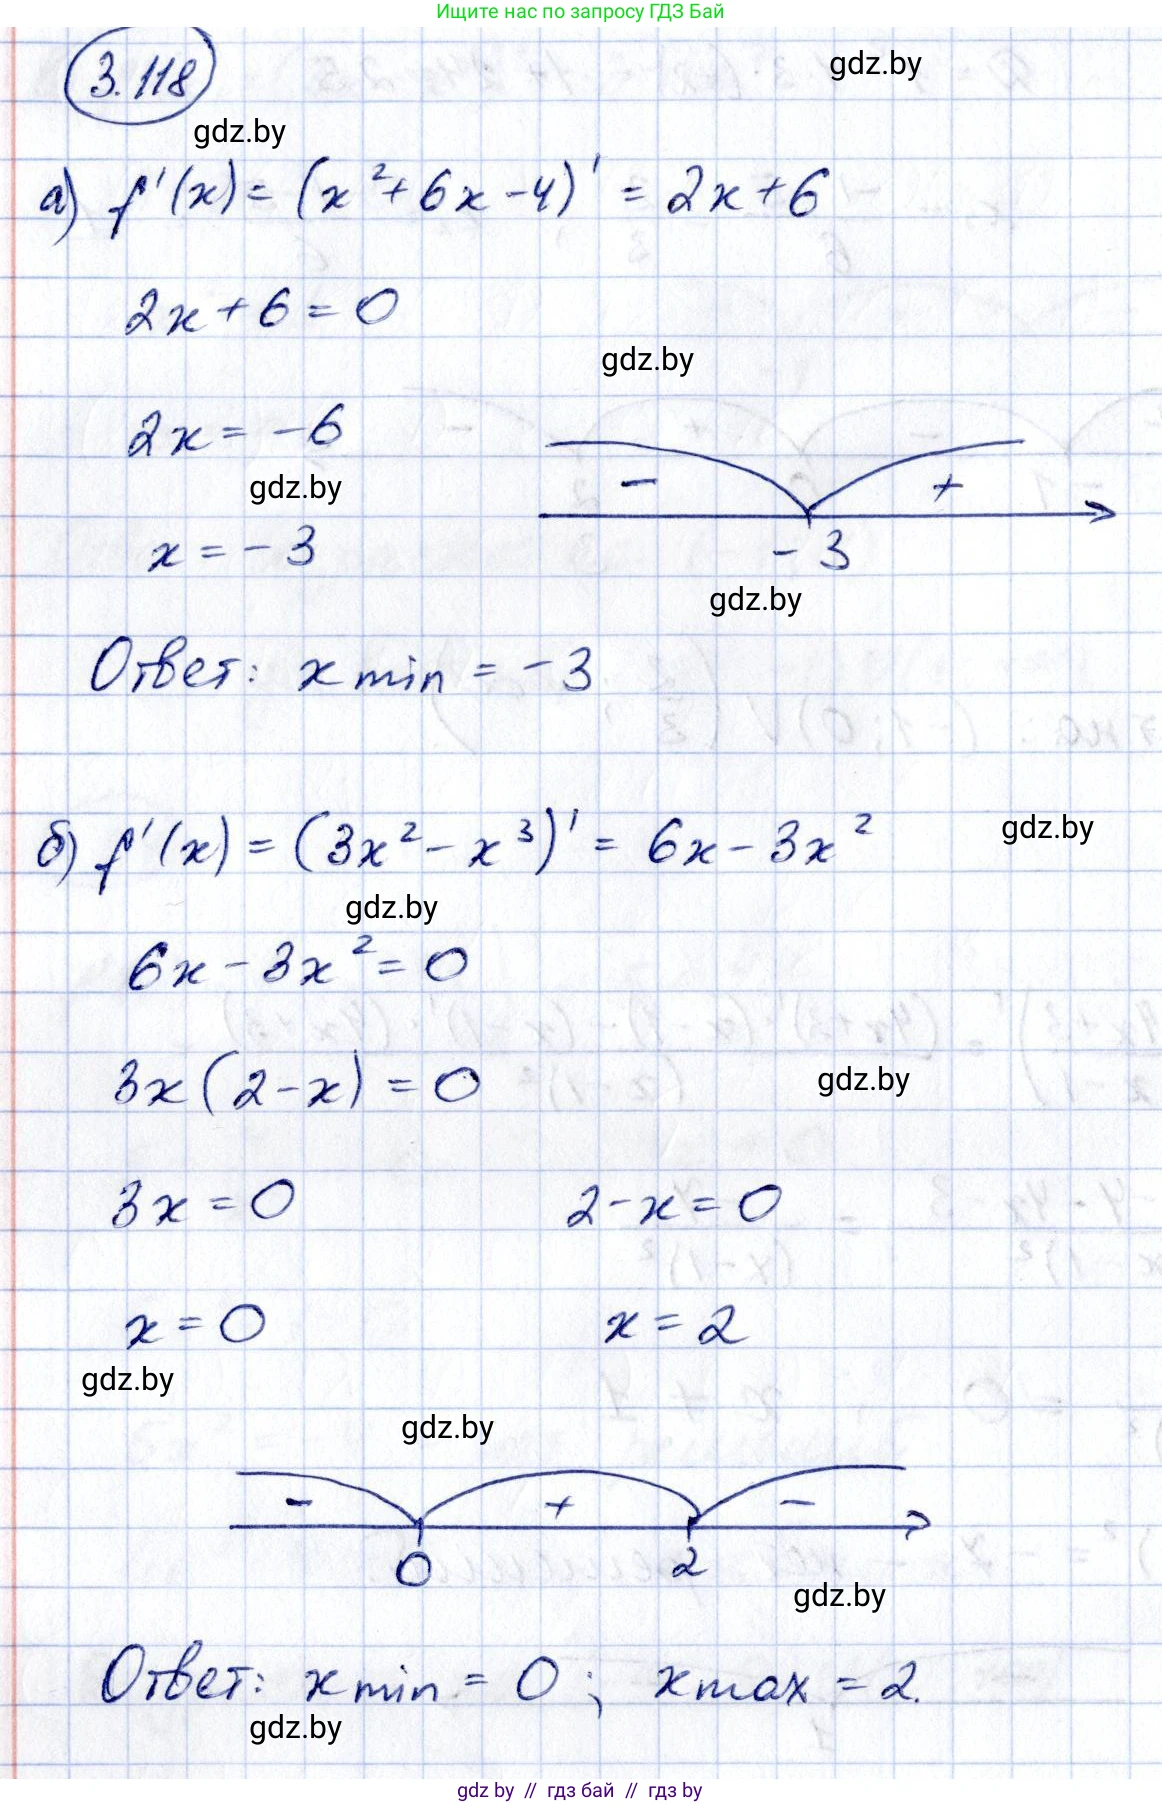 Ищите нас по запросу ГДЗ Бай
3.118
gdz.by
gdz.by
а) f'(x) = (x² + 6x - 4)' = 2x + 6
2x + 6 = 0
gdz.by
2x = -6
gdz.by
- +
x = -3
-3
gdz.by
Ответ: x min = -3
б) f'(x) = (3x² - x³)' = 6x - 3x²
gdz.by
gdz.by
6x - 3x² = 0
3x(2 - x) = 0
gdz.by
3x = 0 2 - x = 0
x = 0 x = 2
gdz.by
gdz.by
- + -
0 2
gdz.by
Ответ: x min = 0; x max = 2.
gdz.by
gdz by // гдз бай // гдз by